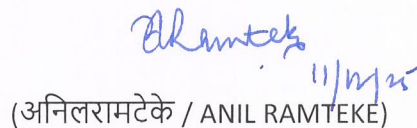 ARamteke
11/12/25
(अनिलरामटेके / ANIL RAMTEKE)